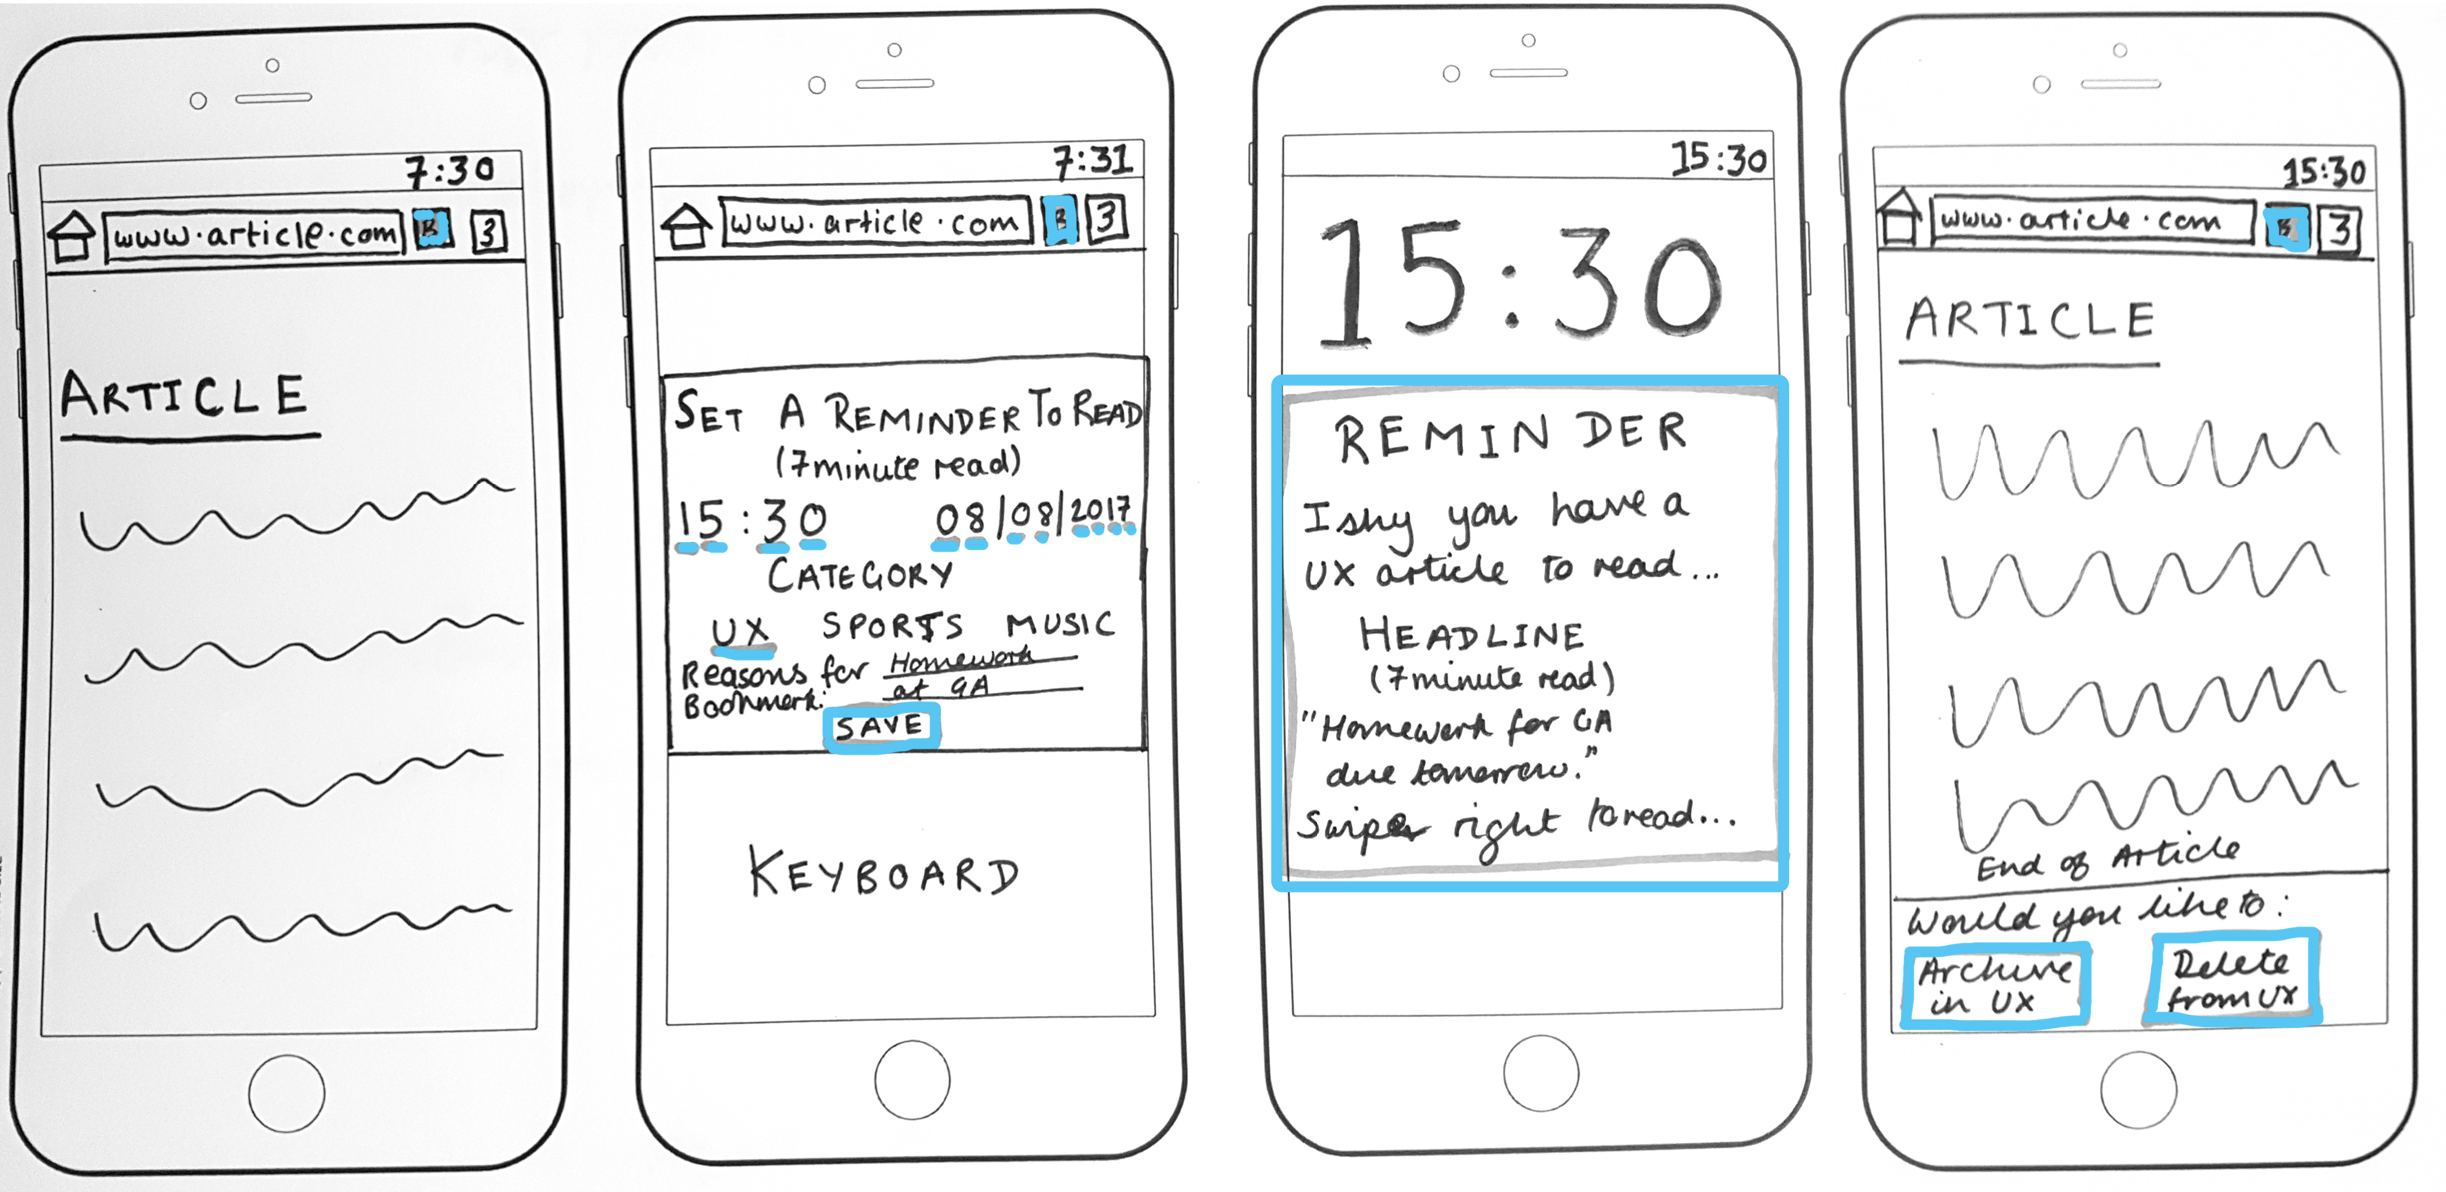 7:30
www.article.com B 3
ARTICLE
7:31
www.article.com B 3
SET A REMINDER TO READ
(7minute read)
15:30 08/08/2017
CATEGORY
UX SPORTS MUSIC
Reasons for Homework
Bookmark: at GA
SAVE
KEYBOARD
15:30
15:30
REMINDER
Ishy you have a
UX article to read...
HEADLINE
(7minute read)
"Homework for GA
due tomorrow."
Swipe right to read...
15:30
www.article.com B 3
ARTICLE
End of Article
Would you like to:
Archive in UX
Delete from UX